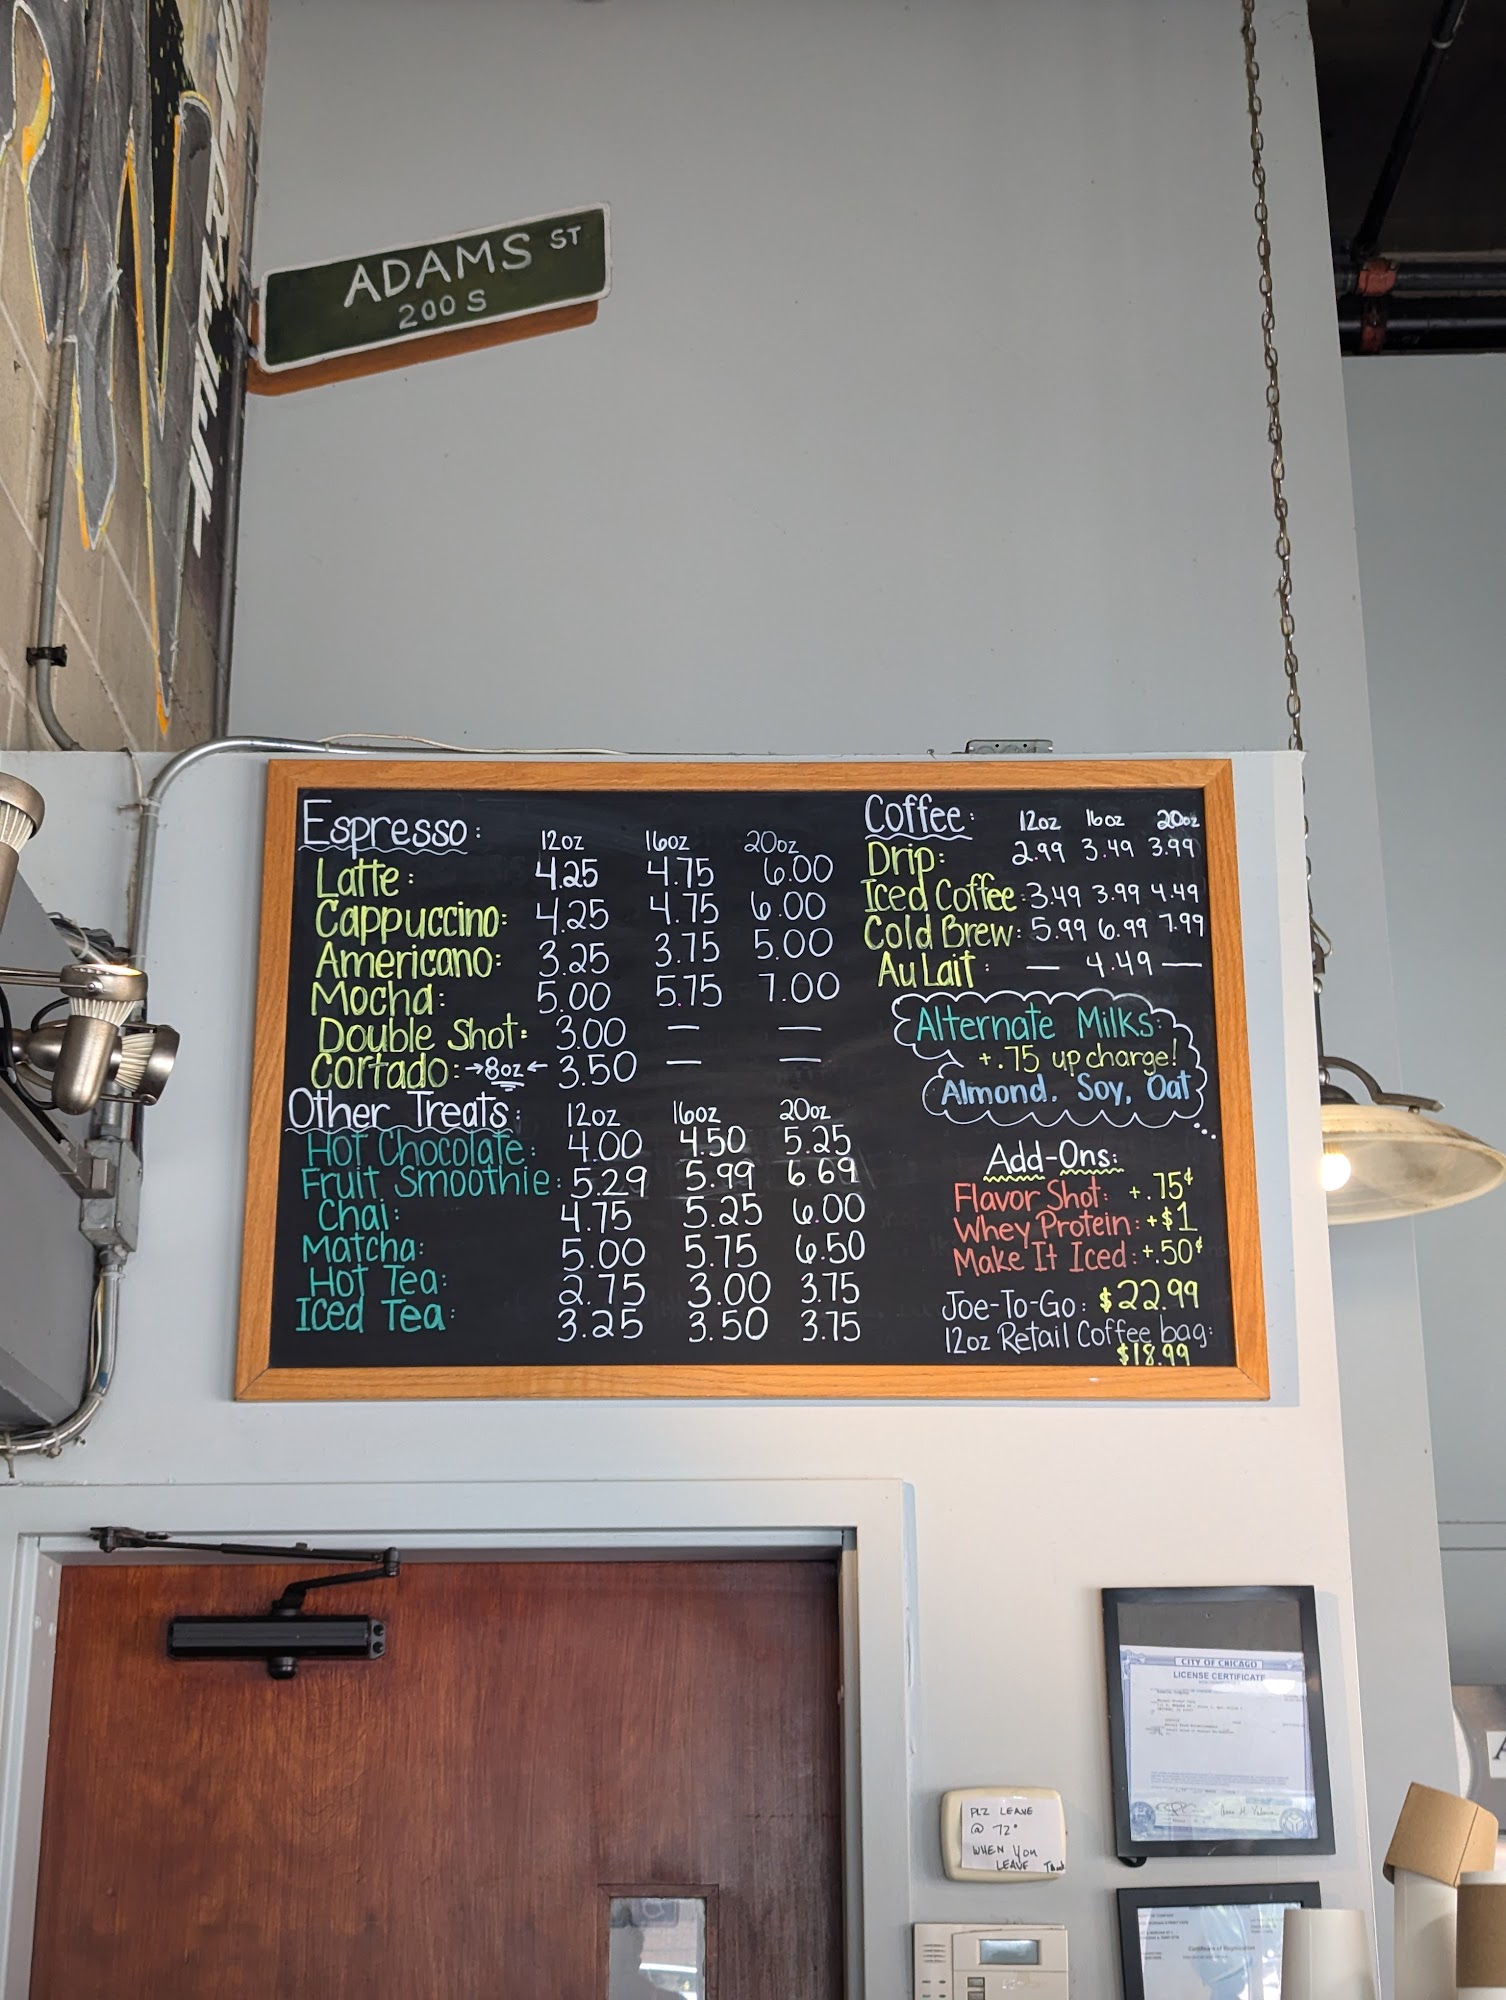 ADAMS ST
200 S
Espresso: 12oz 16oz 20oz
Latte: 4.25 4.75 6.00
Cappuccino: 4.25 4.75 6.00
Americano: 3.25 3.75 5.00
Mocha: 5.00 5.75 7.00
Double Shot: 3.00 — —
Cortado: →8oz← 3.50 — —
Other Treats: 12oz 16oz 20oz
Hot Chocolate: 4.00 4.50 5.25
Fruit Smoothie: 5.29 5.99 6.69
Chai: 4.75 5.25 6.00
Matcha: 5.00 5.75 6.50
Hot Tea: 2.75 3.00 3.75
Iced Tea: 3.25 3.50 3.75
Coffee: 12oz 16oz 20oz
Drip: 2.99 3.49 3.99
Iced Coffee: 3.49 3.99 4.49
Cold Brew: 5.99 6.99 7.99
Au Lait: — 4.49 —
Alternate Milks:
+.75 upcharge!
Almond. Soy, Oat
Add-Ons:
Flavor Shot: +.75¢
Whey Protein: +$1
Make It Iced: +.50¢
Joe-To-Go: $22.99
12oz Retail Coffee bag:
$18.99
CITY OF CHICAGO
LICENSE CERTIFICATE
PLZ LEAVE
@ 72°
WHEN YOU
LEAVE
Certificate of Registration